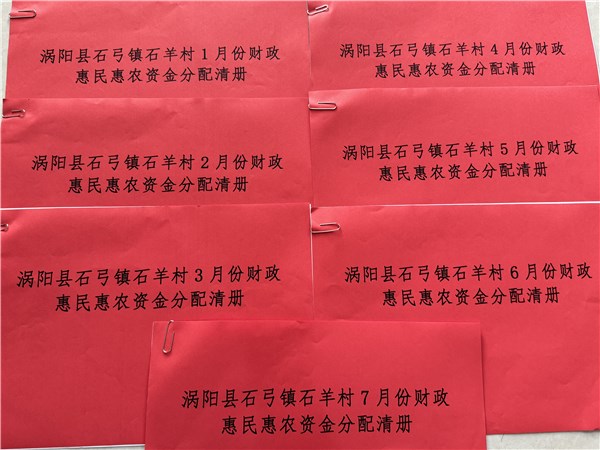 涡阳县石弓镇石羊村1月份财政
惠民惠农资金分配清册
涡阳县石弓镇石羊村4月份财政
惠民惠农资金分配清册
涡阳县石弓镇石羊村2月份财政
惠民惠农资金分配清册
涡阳县石弓镇石羊村5月份财政
惠民惠农资金分配清册
涡阳县石弓镇石羊村3月份财政
惠民惠农资金分配清册
涡阳县石弓镇石羊村6月份财政
惠民惠农资金分配清册
涡阳县石弓镇石羊村7月份财政
惠民惠农资金分配清册